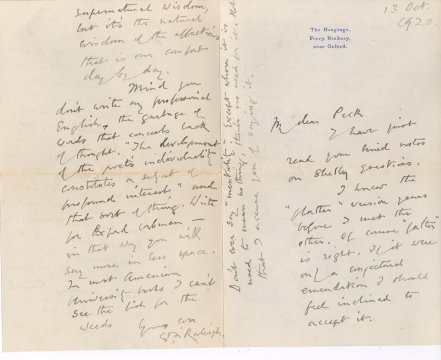 The Hangings,
Ferry Hinksey,
near Oxford.
13 Oct.
1920
My dear Peck
I have just
read your kind notes
on Shelley questions.
I knew the
"flatter" version years
before I met the
other. Of course "
is right. If it were
only a conjectural
emendation I should
feel inclined to
accept it.
supernatural wisdom,
but it's the natural
wisdom of the affections
that is our comfort
day by day.
Mind you
don't write any professional
English, the garbage of
words that conceals lack
of thought. "The development
of the poet's individuality
constitutes a subject of
profound interest" and
that sort of thing. Write
for Oxford
in that way you will
say more in less space.
In most American
University books I can't
see the fish for the
weeds
Yours ever
W. Raleigh.
Don't ever say "mentality" except where it is
used to mean no thing. There is no need for it. Not
that I accuse you of saying it.